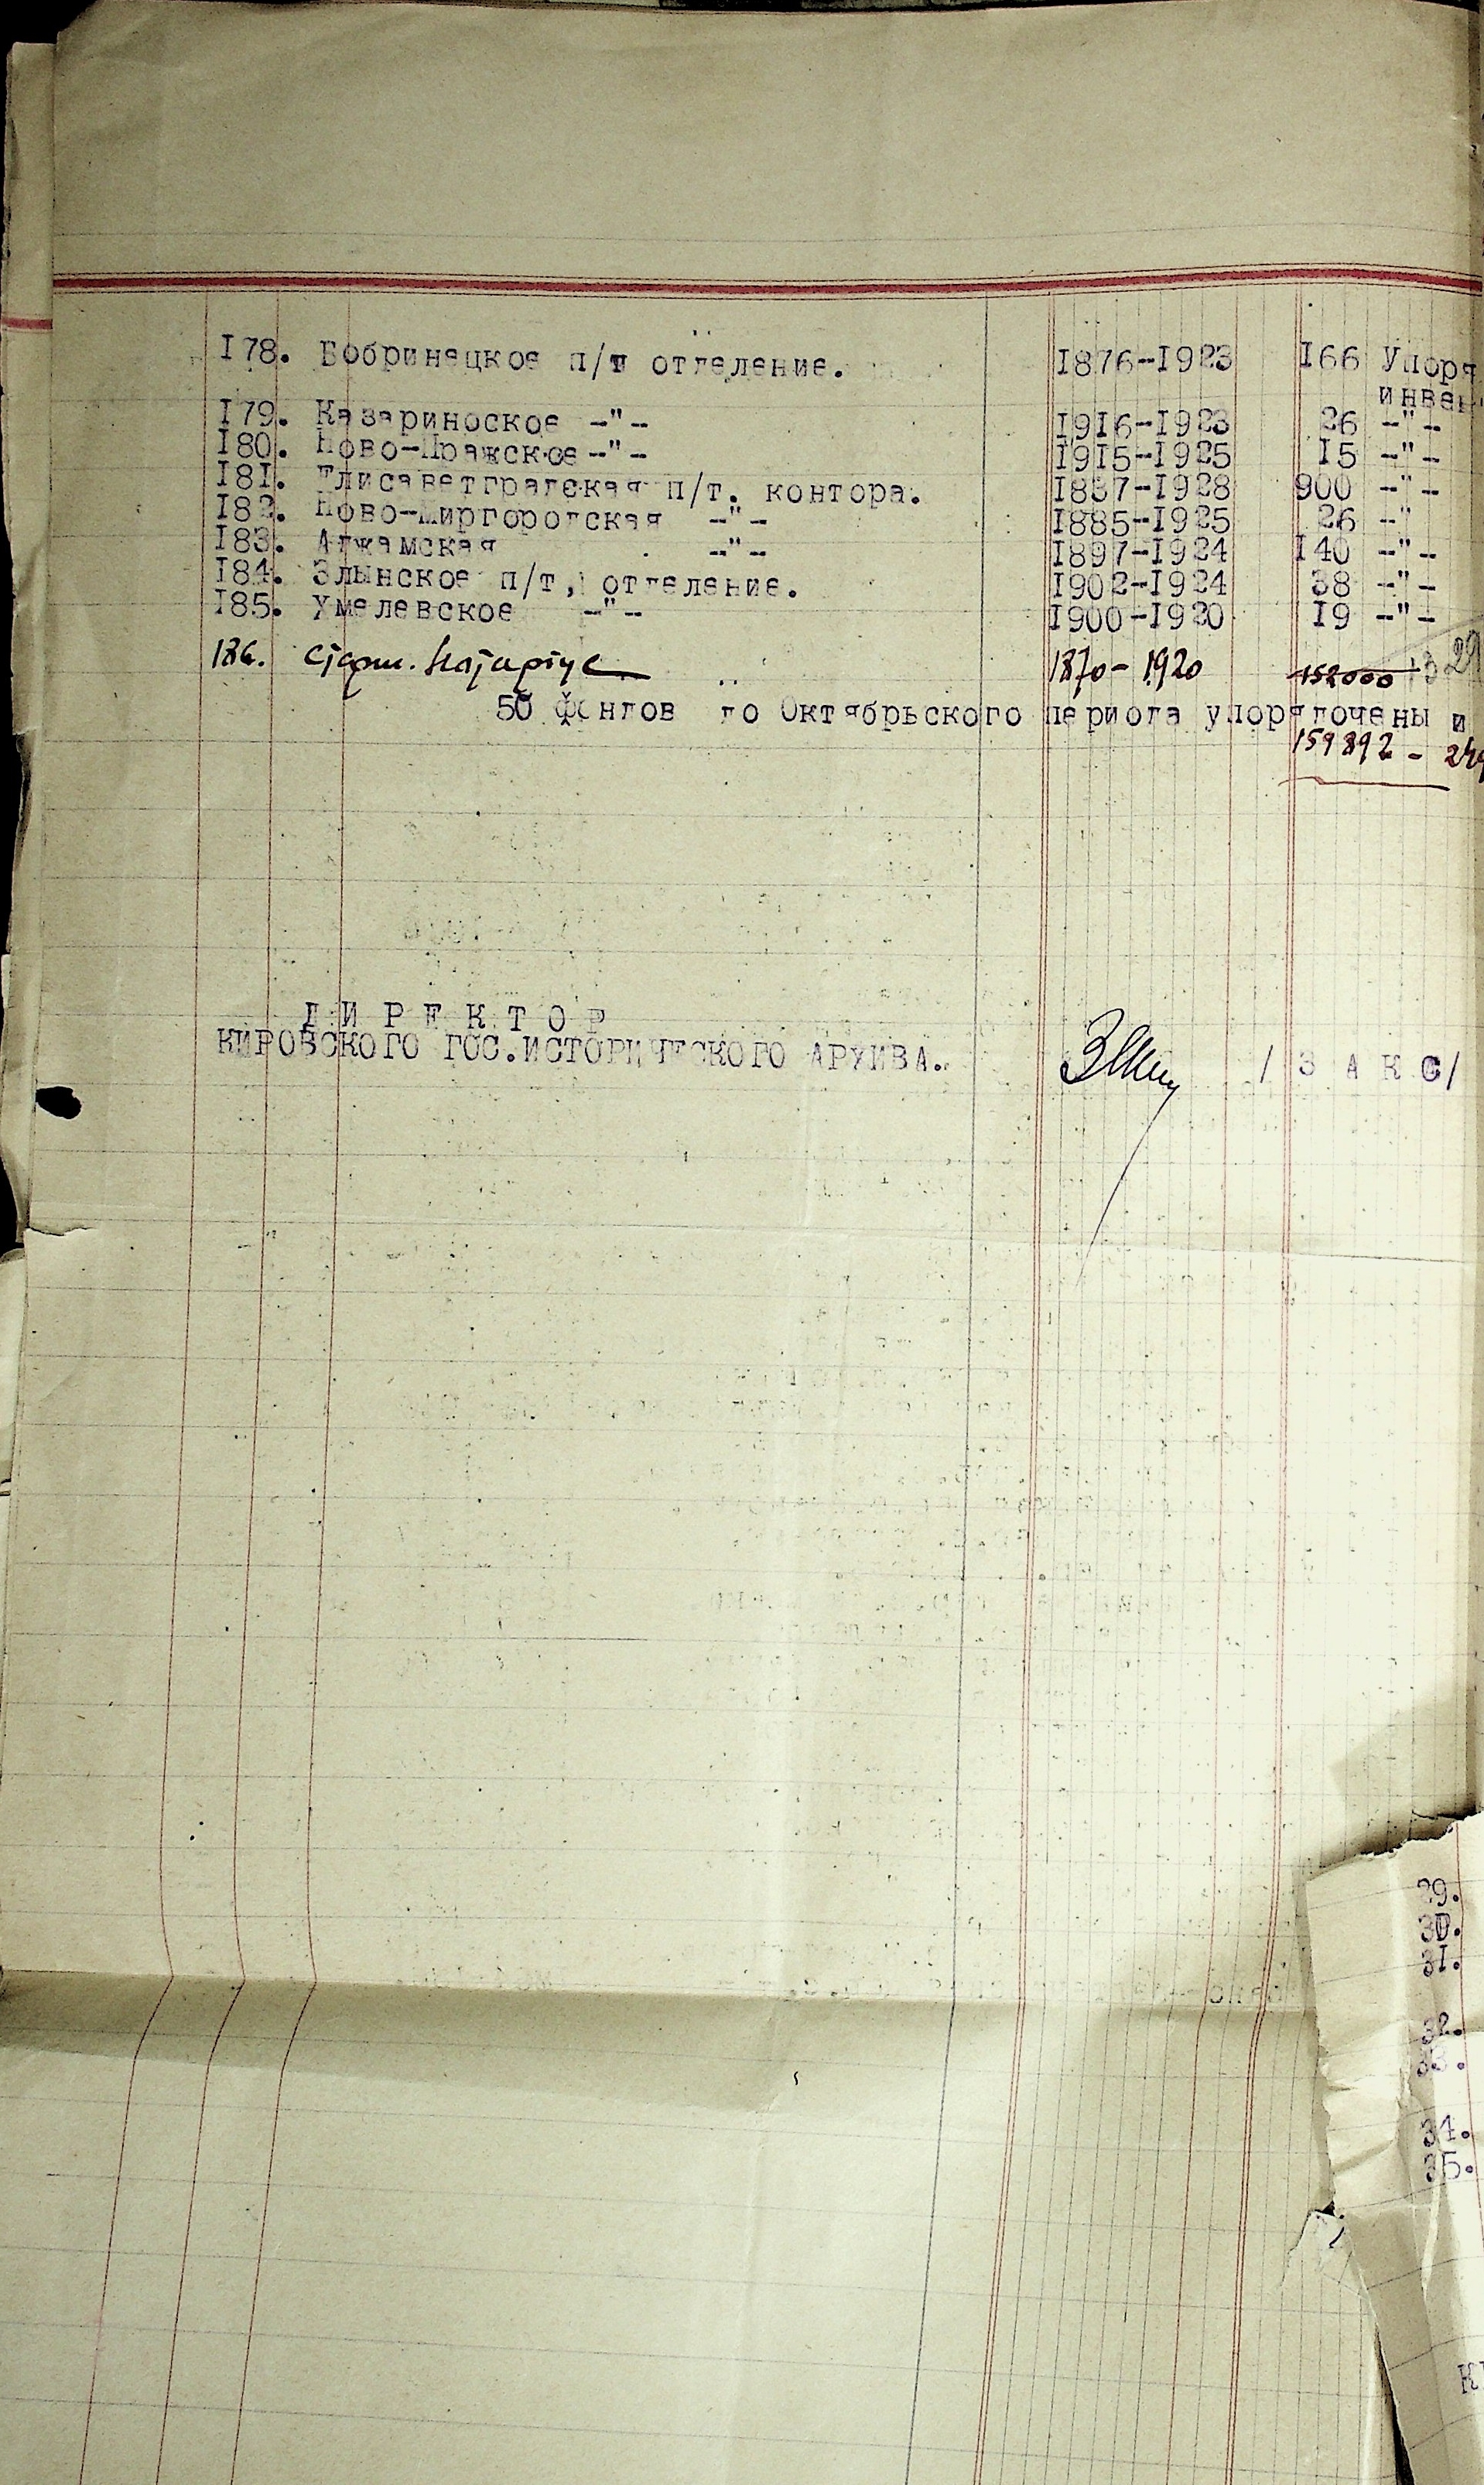 178. Бобринецкое п/т отделение. 1876-1923 166 Упоря
инвен
179. Казариноское -"- 1916-1923 26 -"-
180. Ново-Пражское -"- 1915-1925 15 -"-
181. Елисаветградская п/т. контора. 1887-1928 900 -"-
182. Ново-Миргородская -"- 1885-1925 26 -"
183. Аджамская -"- 1897-1924 140 -"-
184. Злынское п/т, отделение. 1902-1924 38 -"-
185. Хмелевское -"- 1900-1920 19 -"-
186. Старш. Нотаріус 1870-1920 152000
50 фондов до Октябрьского периода упорядочены и
159892 -
ДИРЕКТОР
КИРОВСКОГО ГОС.ИСТОРИЧЕСКОГО АРХИВА. /ЗАКС/
29.
30.
31.
32.
33.
34.
35.